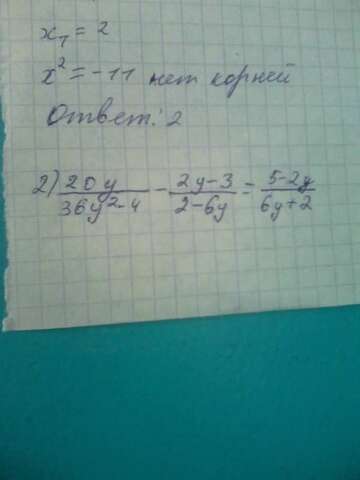 x₁ = 2
x² = -11 нет корней
Ответ: 2
2) 20y/(36y²-4) - (2y-3)/(2-6y) = (5-2y)/(6y+2)